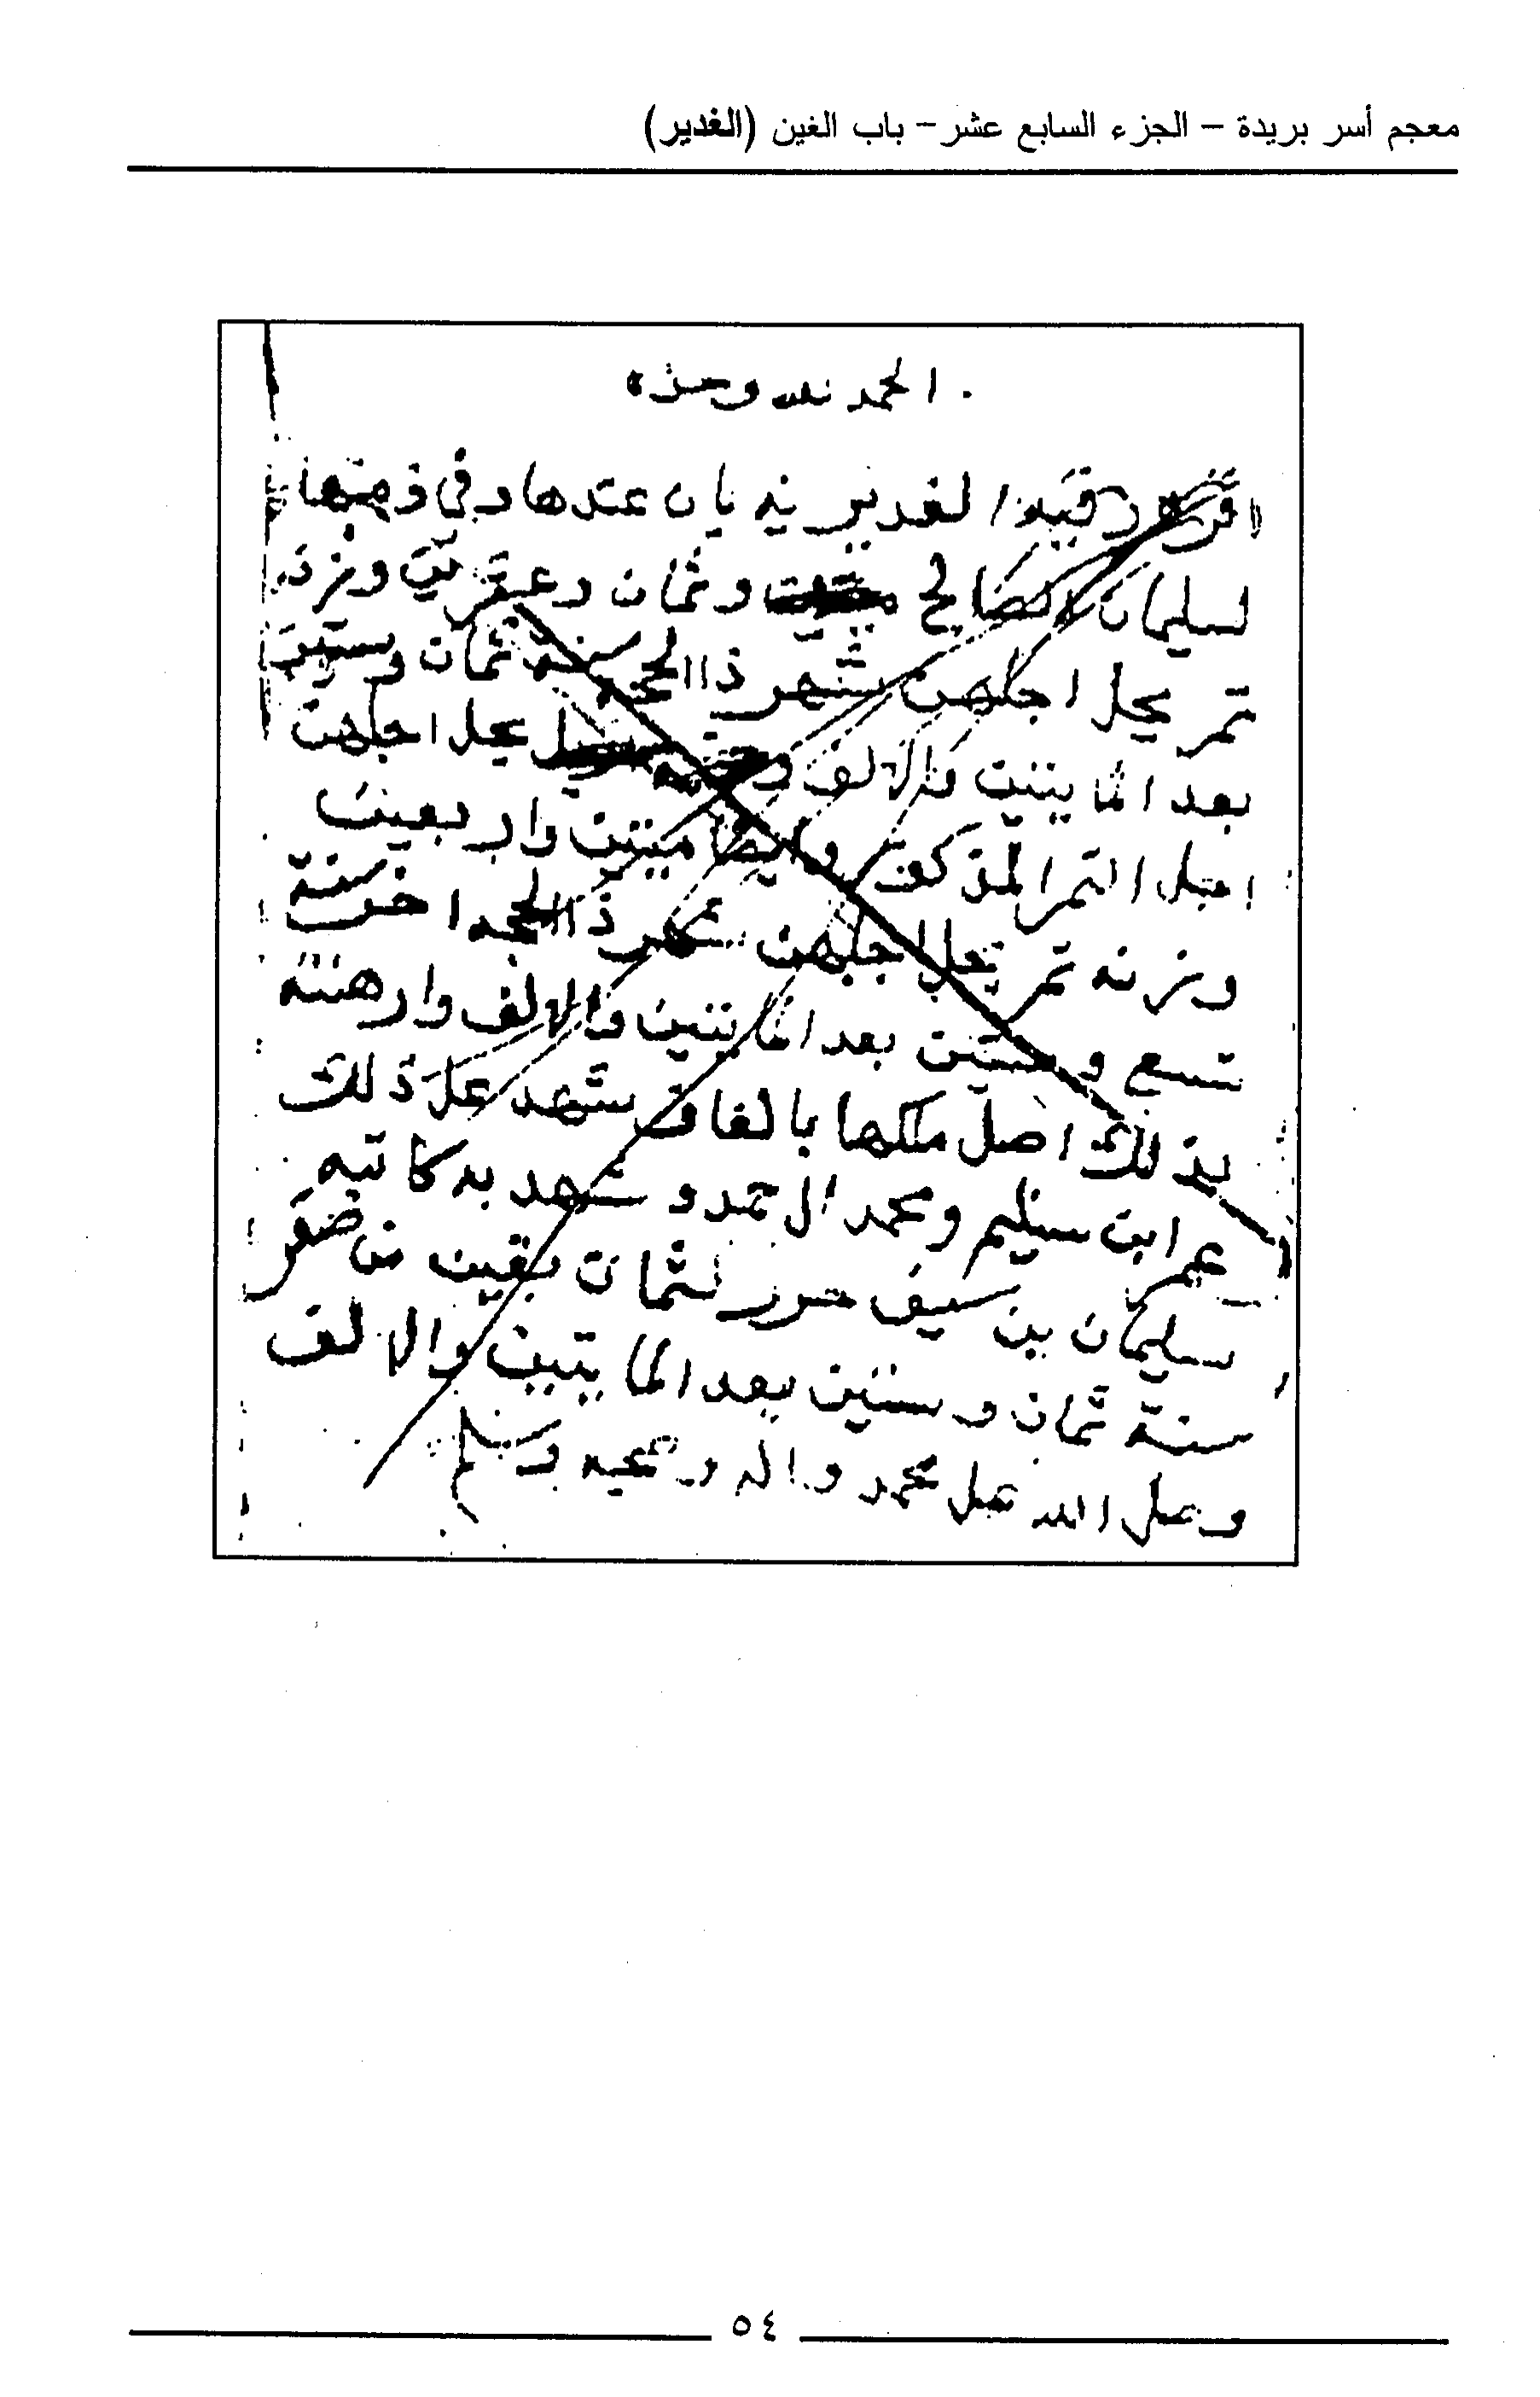 معجم أسر بريدة – الجزء السابع عشر – باب الغين (الغدير)
الحمد لله وحده
اقرت رقيه الغديريه بان عندها وفي ذمتها
لسليمان الصالح وثمان وعشرين وزنة
تمر يحل اجلهن شهر ذا الحجه سنة ثمان وستين
بعد المايتين والالف يحل اجلهن
اجل التمر المذكور وايضا ميتين واربعين
وزنه تمر يحل اجلهن شهر ذا الحجه اخر سنة
تسع وستين بعد المايتين والالف وارهنته
بذلك اصل ملكها بالغاف شهد على ذلك
عمر ابن سليم ومحمد ال حمد وشهد به كاتبه
سليمان بن سيف حرر لثمان بقين من صفر
سنة ثمان وستين بعد المايتين والالف
وصلى الله على محمد واله وصحبه وسلم
٥٤